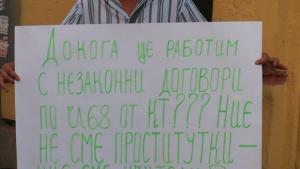 ДОКОГА ЩЕ РАБОТИМ
С НЕЗАКОННИ ДОГОВОРИ
ПО ЧЛ.68 ОТ КТ??? НИЕ
НЕ СМЕ ПРОСТИТУТКИ –
НИЕ СМЕ